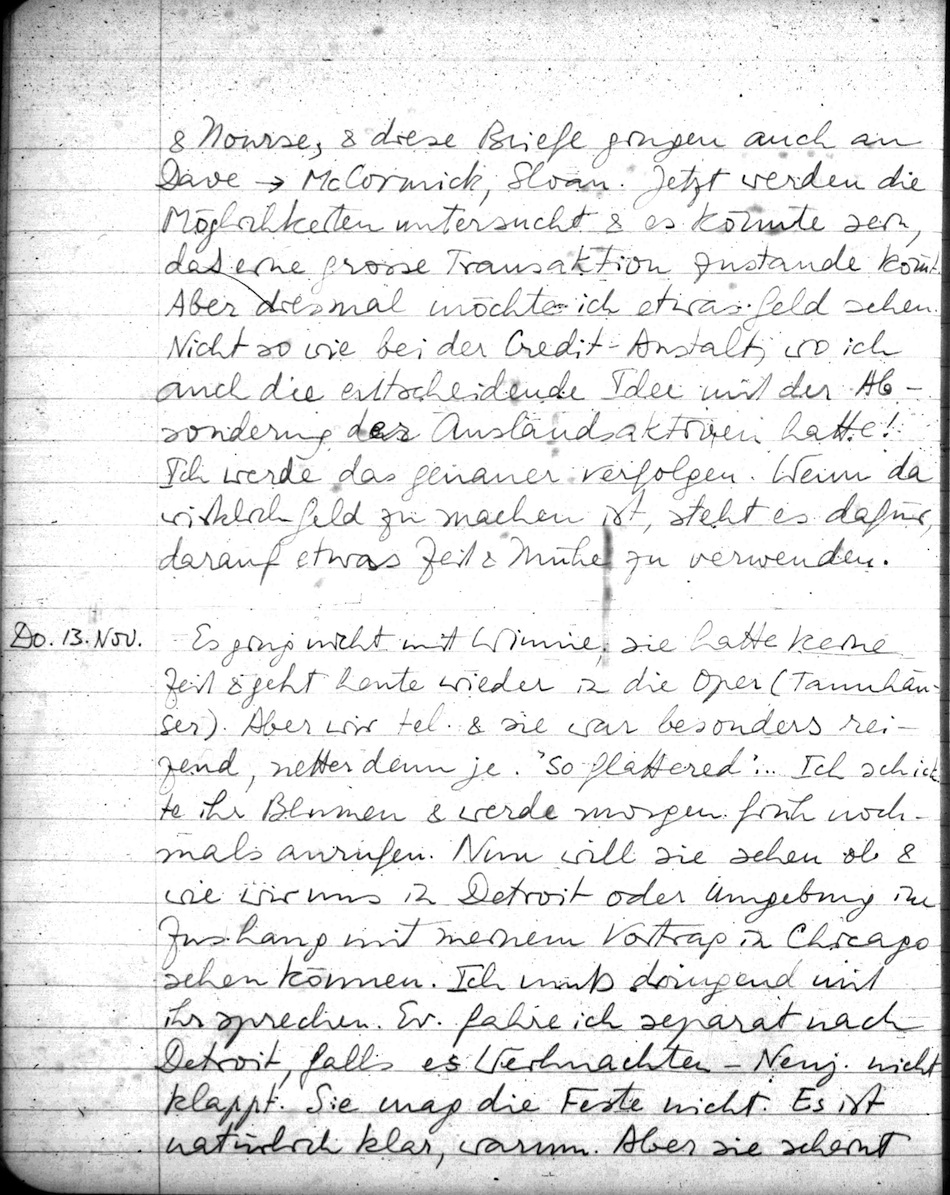 & Nourse, & diese Briefe gingen auch an
Dave → McCormick, Sloan. Jetzt werden die
Möglichkeiten untersucht & es könnte sein,
daß eine grosse Transaktion zustande komt.
Aber diesmal möchte ich etwas Geld sehen.
Nicht so wie bei der Credit-Anstalt, wo ich
auch die entscheidende Idee mit der Ab-
sonderung der Auslandsaktiven hatte!
Ich werde das genauer verfolgen. Wenn da
wirklich Geld zu machen ist, steht es dafür,
darauf etwas Zeit & Mühe zu verwenden.
Do. 13. Nov. Es ging nicht mit Winnie, sie hatte keine
Zeit & geht heute wieder in die Oper (Tannhäu-
ser). Aber wir tel. & sie war besonders rei-
zend, netter denn je. "So flattered"... Ich schick-
te ihr Blumen & werde morgen früh noch-
mals anrufen. Nun will sie sehen ob &
wie wir uns in Detroit oder Umgebung im
Zushang mit meinem Vortrag in Chicago
sehen können. Ich muß dringend mit
ihr sprechen. Ev. fahre ich separat nach
Detroit, falls es Weihnachten - Neuj. nicht
klappt. Sie mag die Feste nicht. Es ist
natürlich klar, warum. Aber sie scheint